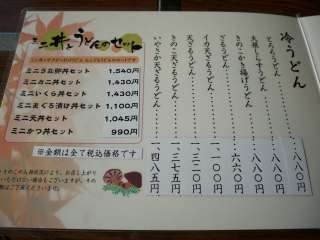 ミニ丼とうどんのセット
ミニうな卵丼セット 1,540円
ミニカニ丼セット 1,430円
ミニいくら丼セット 1,430円
ミニまぐろ漬け丼セット 1,100円
ミニ天丼セット 1,045円
ミニかつ丼セット 990円
※金額は全て税込価格です
冷うどん
とろろうどん 八八〇円
大根しらすうどん 八八〇円
きのこかき揚げうどん 八八〇円
ざるうどん 六六〇円
天ざるうどん 一、一〇〇円
イカ天ざるうどん 一、三二〇円
きのこ天ざるうどん 一、三七五円
いやさか天ざるうどん 一、四八五円